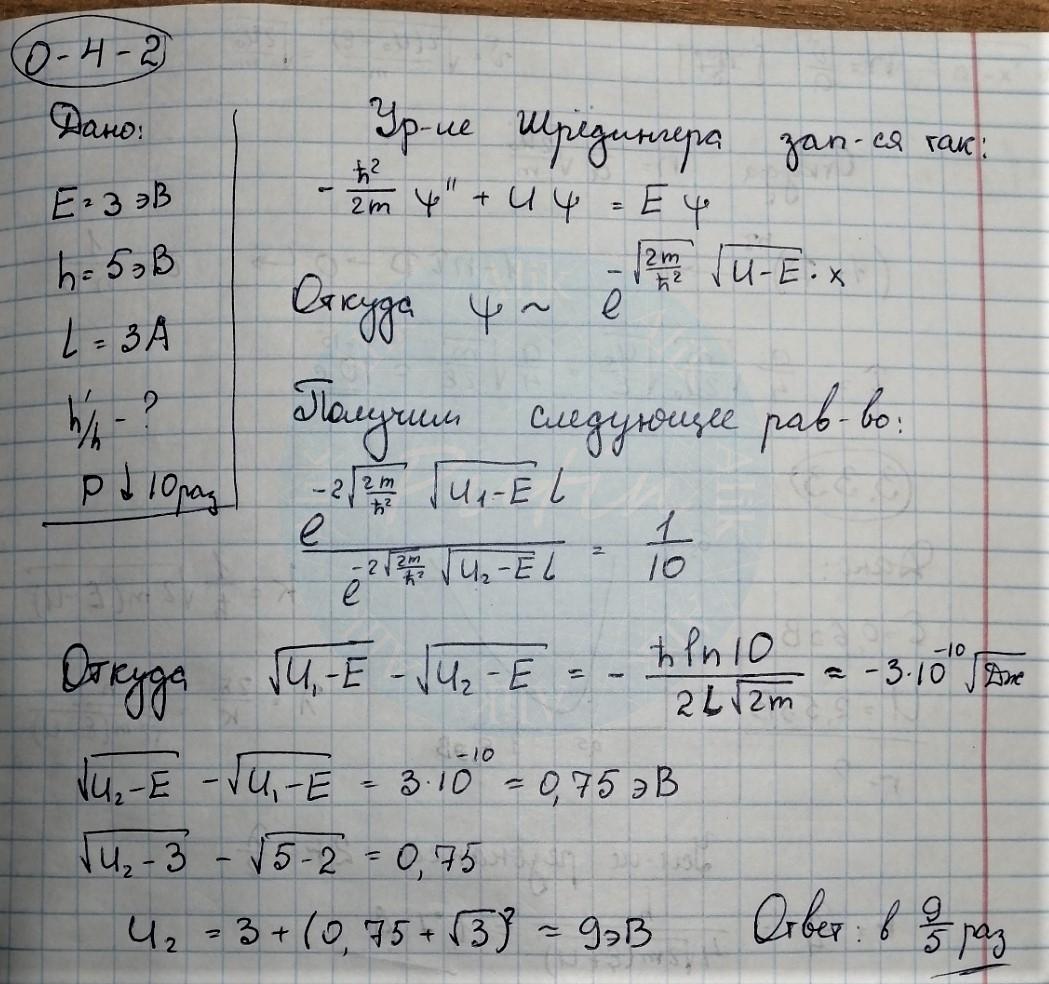 0-4-2
Дано:
E = 3 эВ
h = 5 эВ
l = 3 A
h'/h - ?
D ↓ 10 раз
Ур-ие Шрёдингера зап-ся так:
-ħ²/2m ψ'' + U ψ = E ψ
Откуда ψ ~ e^(-√(2m/ħ²) √(U-E)·x)
Получим следующее рав-во:
e^(-2√(2m/ħ²) √(U₁-E) l) / e^(-2√(2m/ħ²) √(U₂-E) l) = 1/10
Откуда √(U₁-E) - √(U₂-E) = - ħ ln 10 / 2L√(2m) ≈ -3·10⁻¹⁰ √Дж
√(U₂-E) - √(U₁-E) = 3·10⁻¹⁰ = 0,75 эВ
√(U₂-3) - √(5-2) = 0,75
U₂ = 3 + (0,75 + √3)² ≈ 9 эВ
Ответ: в 9/5 раз